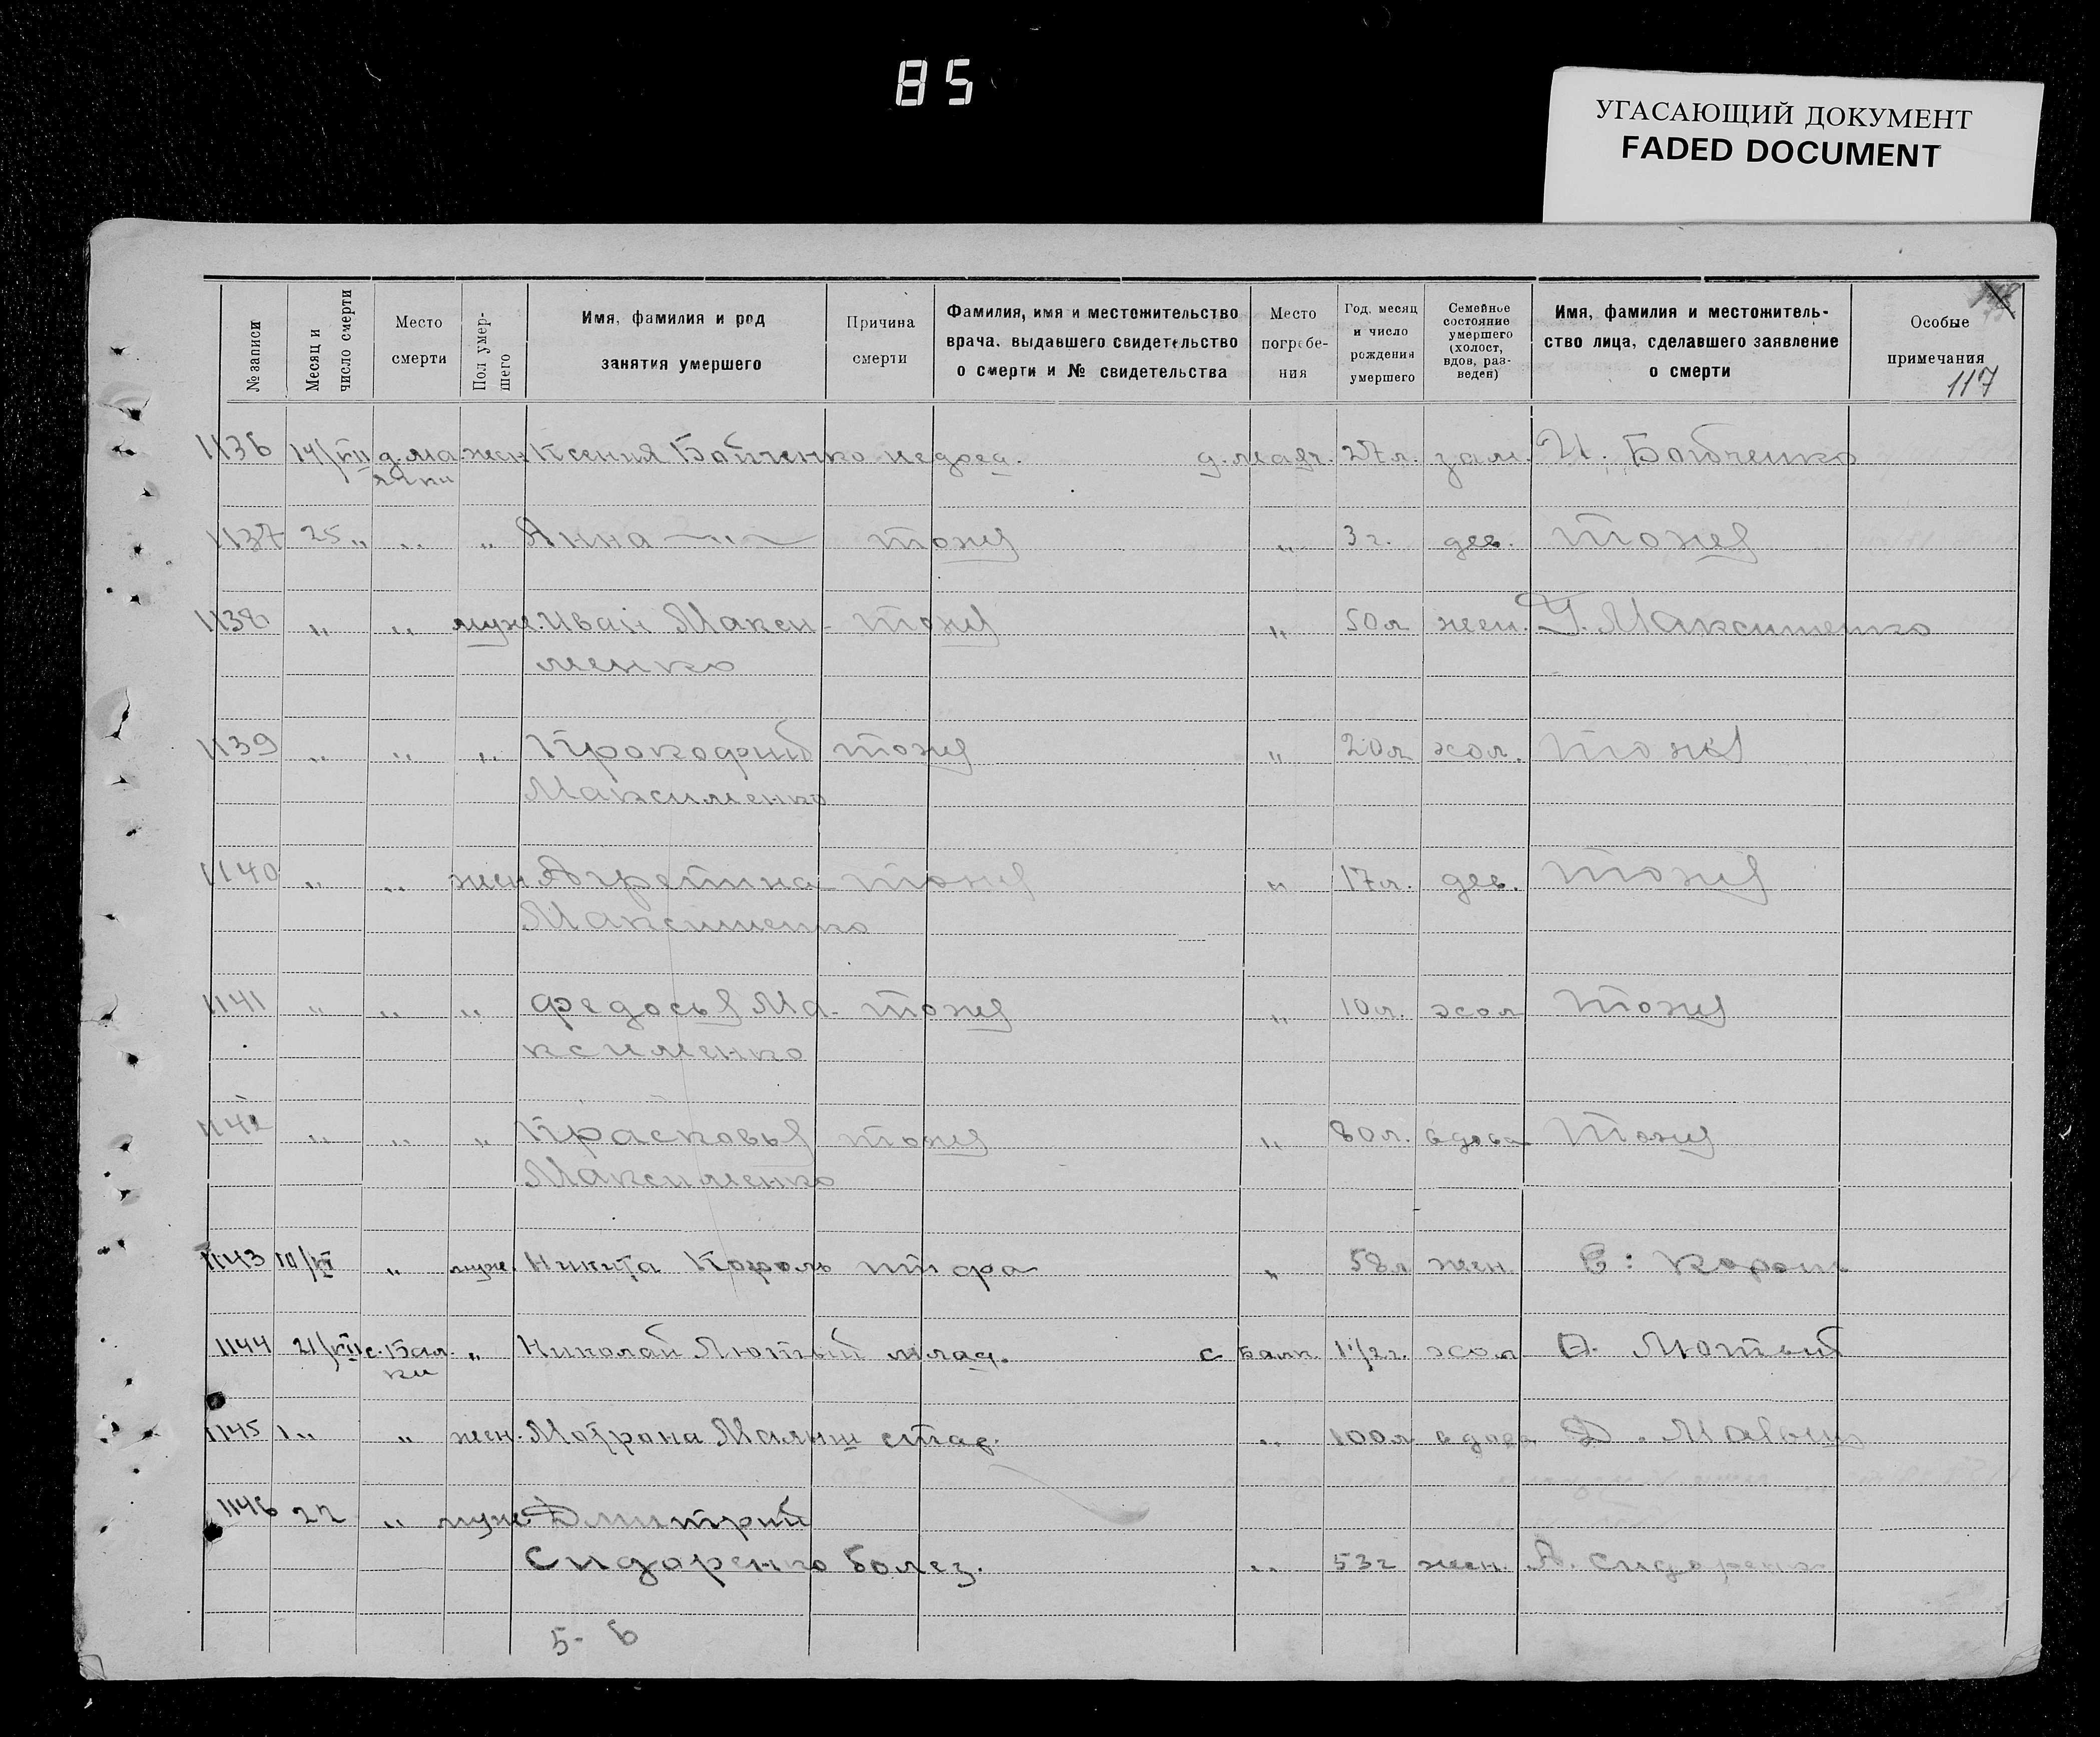 85
УГАСАЮЩИЙ ДОКУМЕНТ
FADED DOCUMENT
№ записи
Месяц и число смерти
Место смерти
Пол умер-
шего
Имя, фамилия и род
занятия умершего
Причина
смерти
Фамилия, имя и местожительство
врача, выдавшего свидетельство
о смерти и № свидетельства
Место
погребе-
ния
Год, месяц
и число
рождения
умершего
Семейное
состояние
умершего
(холост,
вдов, раз-
веден)
Имя, фамилия и местожитель-
ство лица, сделавшего заявление
о смерти
Особые
примечания
117
1136 14/VII д. ма жен Ксения Бабченко недоед. 27л. зам. И. Бабченко
1137 25 „ „ „ Анна — „ — тоже „ 3 г. дев. тоже
1138 „ „ муж. Иван Макси- тоже „ 50л жен. Максименко
менко
1139 „ „ „ Прокофий тоже „ 20л хол. тоже
Максименко
1140 „ „ жен тоже „ 17л. дев. тоже
Максименко
1141 „ „ „ Федосья Ма- тоже „ 10л. хол тоже
ксименко
1142 „ „ „ Прасковья тоже „ 80л. вдова тоже
Максименко
1143 „ муж. Никита Король „ 58л жен.
1144 21/VII с. Бал- „ Николай Лютый млад. с Балк. 1 1/2 г. хол О. Лютый
ки
1145 1 „ „ жен. Матрона Малыш стар. „ 100л вдова Д. Малыш
1146 22 „ муж Дмитрий
Сидоренко болез. „ 53г жен. А. Сидоренко
5-6